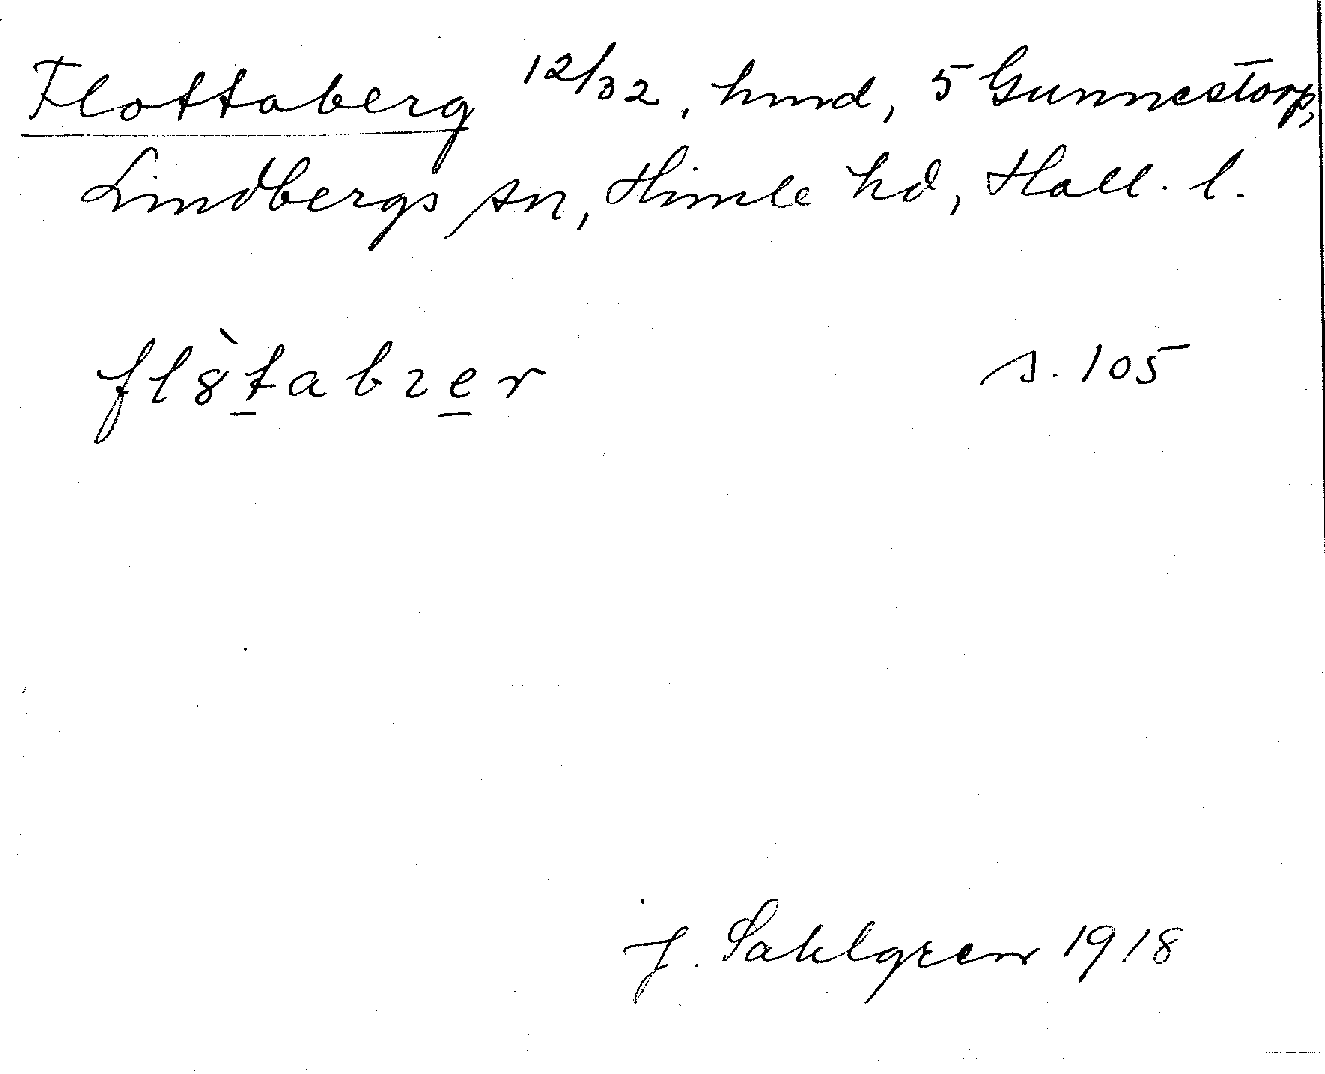 Flottaberg 12/32, hmd, 5 Gunnestorp,
Lindbergs sn, Himle hd, Hall. l.
fl8̀t̲abɿe̲r s. 105
J. Sahlgren 1918